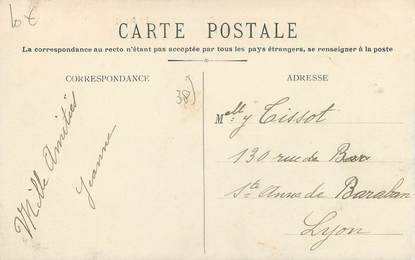 10 €
CARTE POSTALE
La correspondance au recto n'étant pas acceptée par tous les pays étrangers, se renseigner à la poste
CORRESPONDANCE
ADRESSE
38)
Mille Amitiés
Jeanne
Melle Y Tissot
130 rue de Bar
Ste Anne de Baraban
Lyon